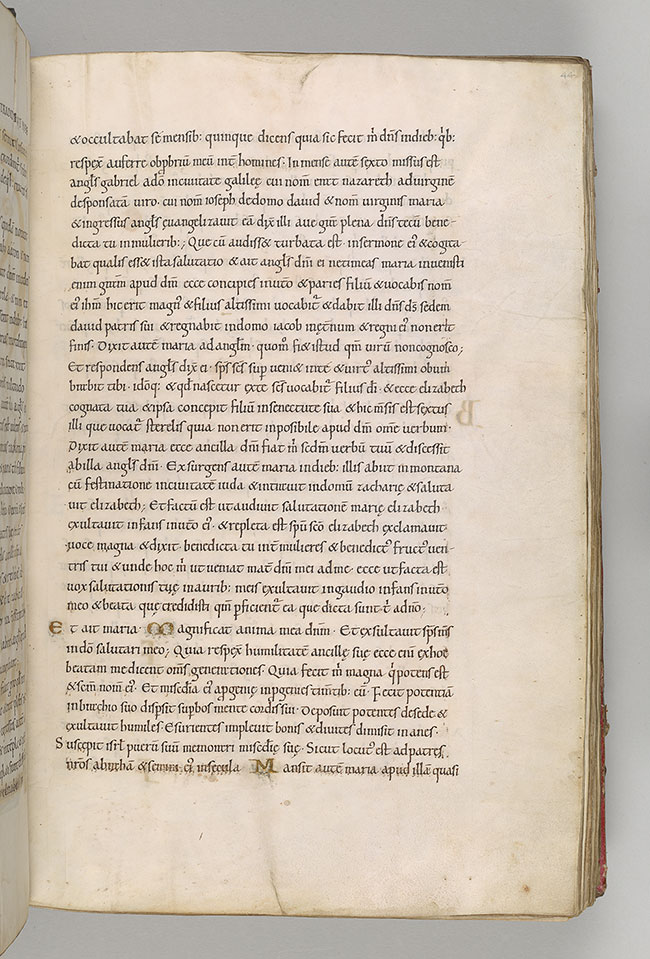 & occultabat se mensib: quinque dicens quia sic fecit m̄ dn̄s indieb: q̄b:
respex̄ auferre obp̄briū meū int̄ homines. In mense autē sexto missus est
angl̄s gabriel adō inciuitatē galileę cui nom̄ erat nazareth aduirginē
desponsatā uiro. cui nom̄ ioseph dedomo dauid & nom̄ uirginis maria
& ingressus angl̄s euangelizauit eā dix̄ illi aue gr̄a plena dn̄s tecū bene-
dicta tu inmulierib:; Que cū audiss& turbata est insermone ei' & cogita-
bat qualis ess& ista salutatio & ait angl̄s dm̄ ei netimeas maria inuenisti
enim gr̄am apud dm̄ ecce concipies inutō & paries filiū & uocabis nom̄
ei' ihm̄ hic erit magn' & filius altissimi uocabit̄ & dabit illi dn̄s ds̄ sedem
dauid patris sui & regnabit indomo iacob inęt̄num & regni ei' non erit
finis. Dixit autē maria ad anglm̄. quom̄ fi& istud qm̄ uirū noncognosco;
Et respondens angl̄s dix̄ ei. sp̄s sc̄s sup ueni& inte & uirt' altissimi obum
brabit tibi. idoq: & qd̄ nascetur exte sc̄s uocabit̄ filius di̅. & ecce elizabeth
cognata tua & ipsa concepit filiū insenectute sua & hic m̄sis est sextus
illi que uocat̄ sterelis quia non erit inposibile apud dm̄ om̄e uerbum.
Dixit autē maria ecce ancilla dm̄ fiat m̄ sedm̄ uerbū tuū & discessit
abilla angl̄s dm̄. Exsurgens autē maria indieb: illis abiit inmontana
cū festinatione inciuitatē iuda & intrauit indomū zacharię & saluta
uit elizabeth; Et factū est ut audiuit salutationē marię elizabeth
exultauit infans inutō ei'. & repleta est sp̄u sc̄o elizabeth exclamauit
uoce magna & dixit. benedicta tu int̄ mulieres & benedict' fruct' uen-
tris tui & unde hoc m̄ ut ueniat mat̄ dm̄ mei adme. ecce ut facta est
uox salutationis tuę inaurib: meis exultauit ingaudio infans inutō
meo & beata quę credidisti qm̄ pficient̄ ea que dicta sunt t̄ adn̄o;
Et ait maria. Magnificat anima mea dnm̄. Et exsultauit sps̄ ms̄
indō salutari meo; Quia respex̄ humilitatē ancillę suę ecce eni̅ exhoc
beatam me dicent om̄s generationes. Quia fecit m̄ magna q̇ potens est
& sc̄m nom̄ ei'. Et miscd̄ia ei' apgenie inpgenies tim̄tib: eū. Fecit potentiā
inbrachio suo dispsit supbos mente cordis sui. Deposuit potentes desede &
exultauit humiles. Esurientes impleuit bonis & diuites dimisit inanes.
Suscepit isrl̄ puerū suū memorari misc̄die suę. Sicut locut' est adpatres
nr̄os abraham & semini ei' insecula Mansit autē maria apud illā quasi